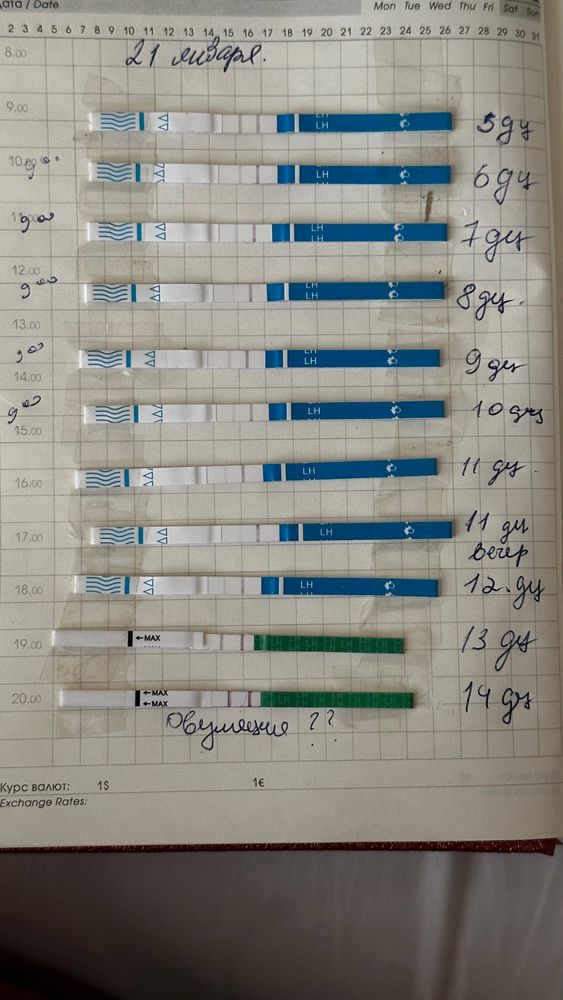 Дата / Date
Mon Tue Wed Thu Fri Sat Sun
2 3 4 5 6 7 8 9 10 11 12 13 14 15 16 17 18 19 20 21 22 23 24 25 26 27 28 29 30 31
8.00
21 января.
9.00
LH
LH
5 дц
10.00
9 00
LH
6 дц
9 00
LH
LH
7 дц
12.00
9 00
LH
LH
8 дц.
13.00
9 00
LH
LH
9 дц
14.00
9 00
LH
10 дц
15.00
LH
11 дц.
16.00
LH
11 дц
вечер
17.00
LH
12. дц
18.00
←MAX
13 дц
19.00
←MAX
←MAX
14 дц
20.00
Овуляция ??
Курс валют: 1$ 1€
Exchange Rates: